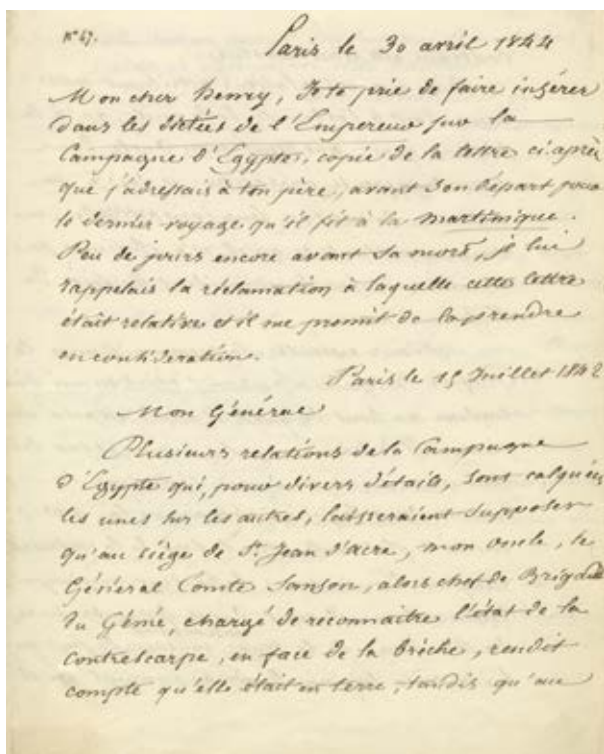 N° 67.
Paris le 30 avril 1844
Mon cher henry, Je te prie de faire insérer
dans les dictées de l'Empereur sur la
Campagne d'Egypte, copie de la lettre ci-après
que j'adressais à ton père, avant son départ pour
le dernier voyage qu'il fit à la martinique.
Peu de jours encore avant sa mort, je lui
rappelais la réclamation à laquelle cette lettre
était relative et il me promit de la prendre
en considération.
Paris le 15 Juillet 1842
Mon Général
Plusieurs relations de la Campagne
d'Egypte qui, pour divers détails, sont calquées
les unes sur les autres, laisseraient supposer
qu'au siège de St. Jean d'acre, mon oncle, le
Général Comte Sanson, alors chef de Brigade
du Génie, chargé de reconnaitre l'état de la
contrescarpe, en face de la brèche, rendit
compte qu'elle était en terre, tandis qu'une